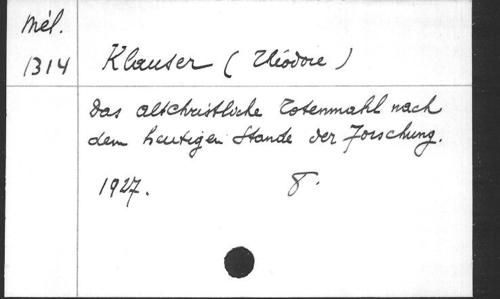 Mél.
1314
Klauser ( Théodore )
Das altchristliche Totenmahl nach
dem heutigen Stande der Forschung.
1927. 8°.